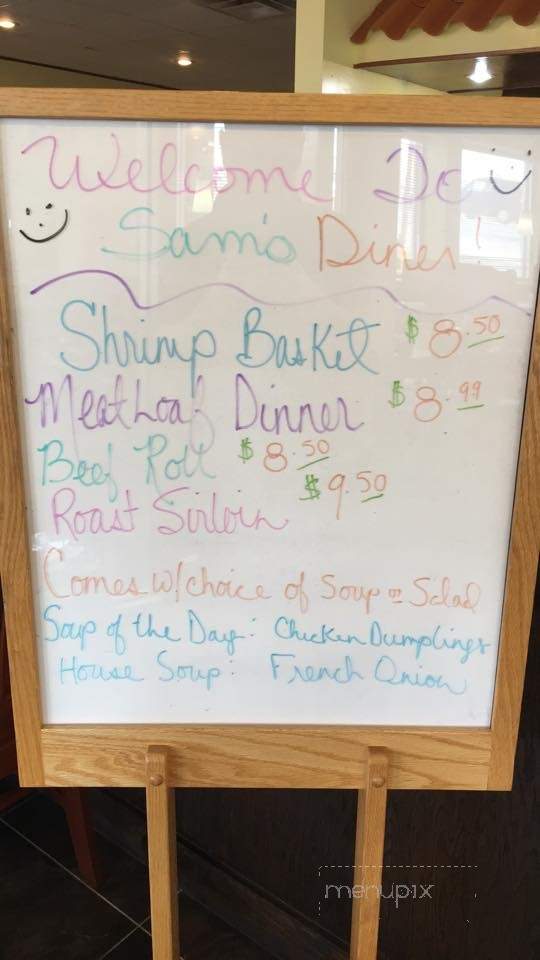 Welcome To
Sam's Diner!
Shrimp Basket $8.50
MeatLoaf Dinner $8.99
Beef Roll $8.50
Roast Sirloin $9.50
Comes w/choice of Soup or Salad
Soup of the Day: Chicken Dumplings
House Soup: French Onion
menupix